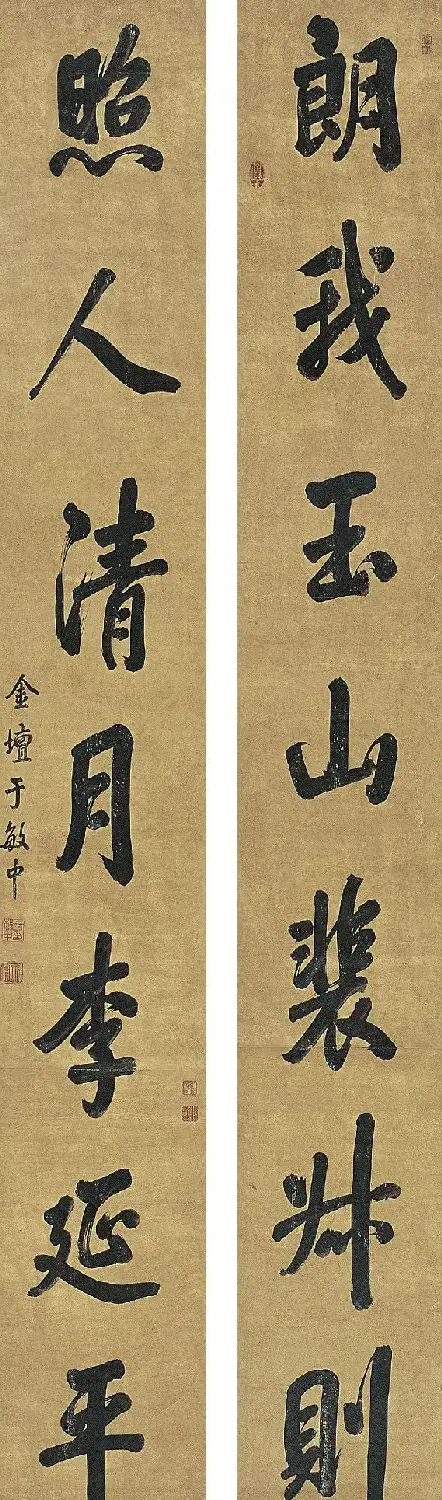 朗我玉山裴叔則
照人清月李延平
金壇于敏中